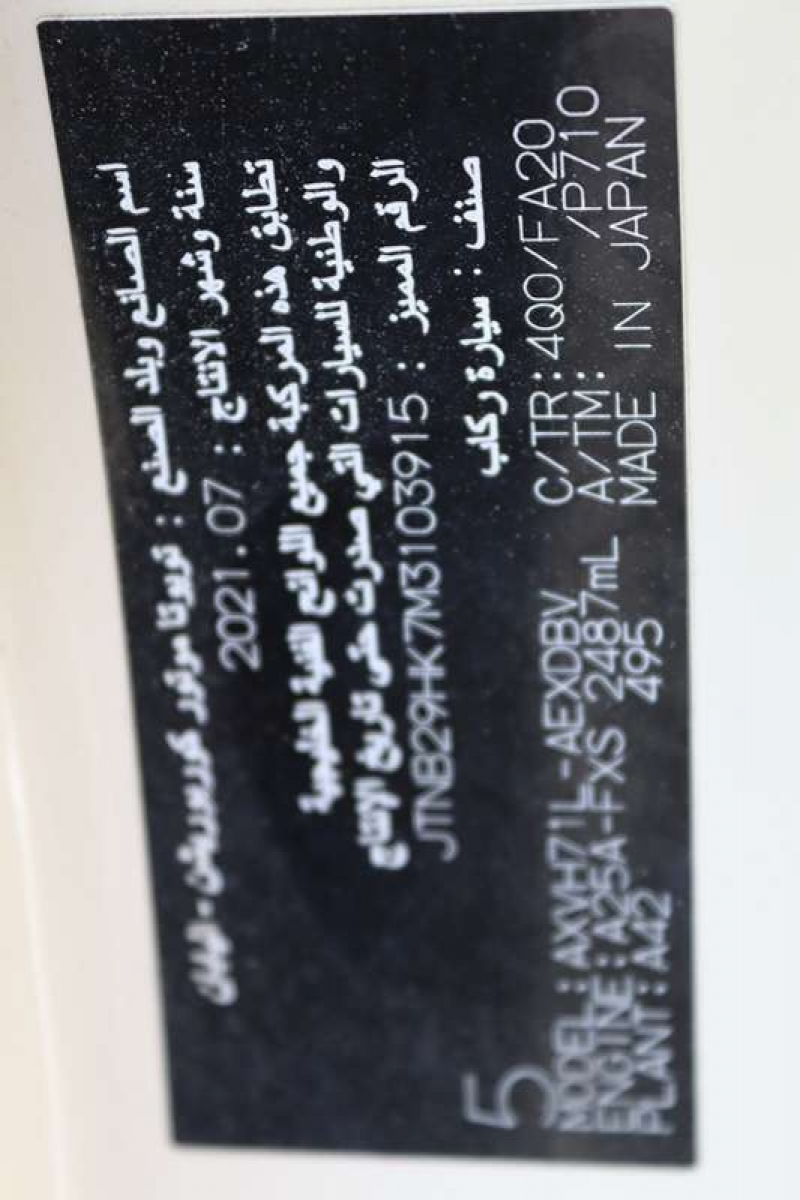 اسم الصانع وبلد الصنع : تويوتا موتور كوربوريشن - اليابان
سنة وشهر الانتاج : 2021.07
تطابق هذه المركبة جميع اللوائح الفنية الخليجية
والوطنية للسيارات التي صدرت حتى تاريخ الإنتاج
الرقم المميز : JTNB29HK7M3103915
صنف : سيارة ركاب
5
MODEL : AXVH71L-AEXDBV C/TR: 4Q0/FA20
ENGINE : A25A-FXS 2487mL A/TM: /P710
PLANT : A42 495 MADE IN JAPAN